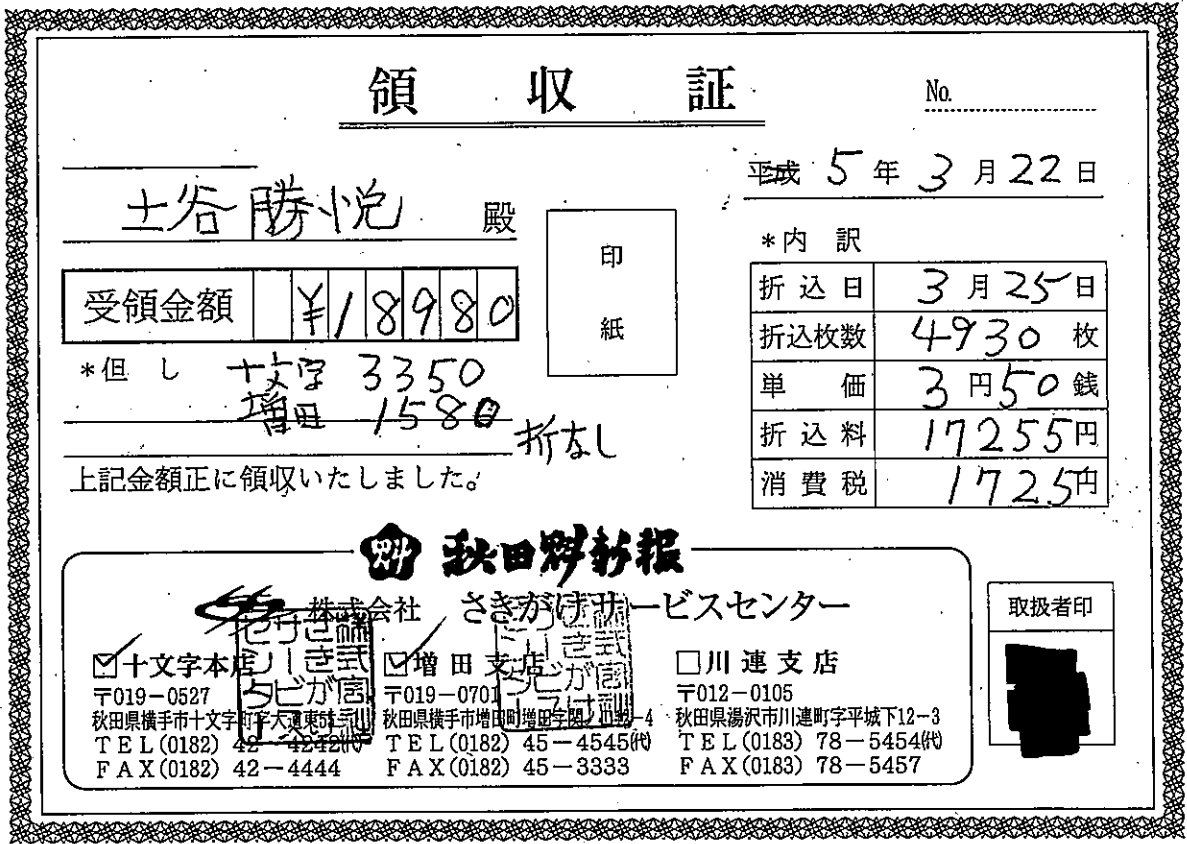 領収証
No.
平成 5年 3月22日
土谷勝悦 殿
印紙
受領金額 ¥18980
*但し 十文字 3350
増田 1580
折なし
上記金額正に領収いたしました。
*内訳
折込日 3月25日
折込枚数 4930枚
単価 3円50銭
折込料 17255円
消費税 1725円
魁 秋田魁新報
株式会社 さきがけサービスセンター
☑十文字本店
〒019-0527
秋田県横手市十文字町字大道東
TEL(0182) 42-4242㈹
FAX(0182) 42-4444
☑増田支店
〒019-0701
秋田県横手市増田町増田字関ノ口
TEL(0182) 45-4545㈹
FAX(0182) 45-3333
□川連支店
〒012-0105
秋田県湯沢市川連町字平城下12-3
TEL(0183) 78-5454㈹
FAX(0183) 78-5457
取扱者印